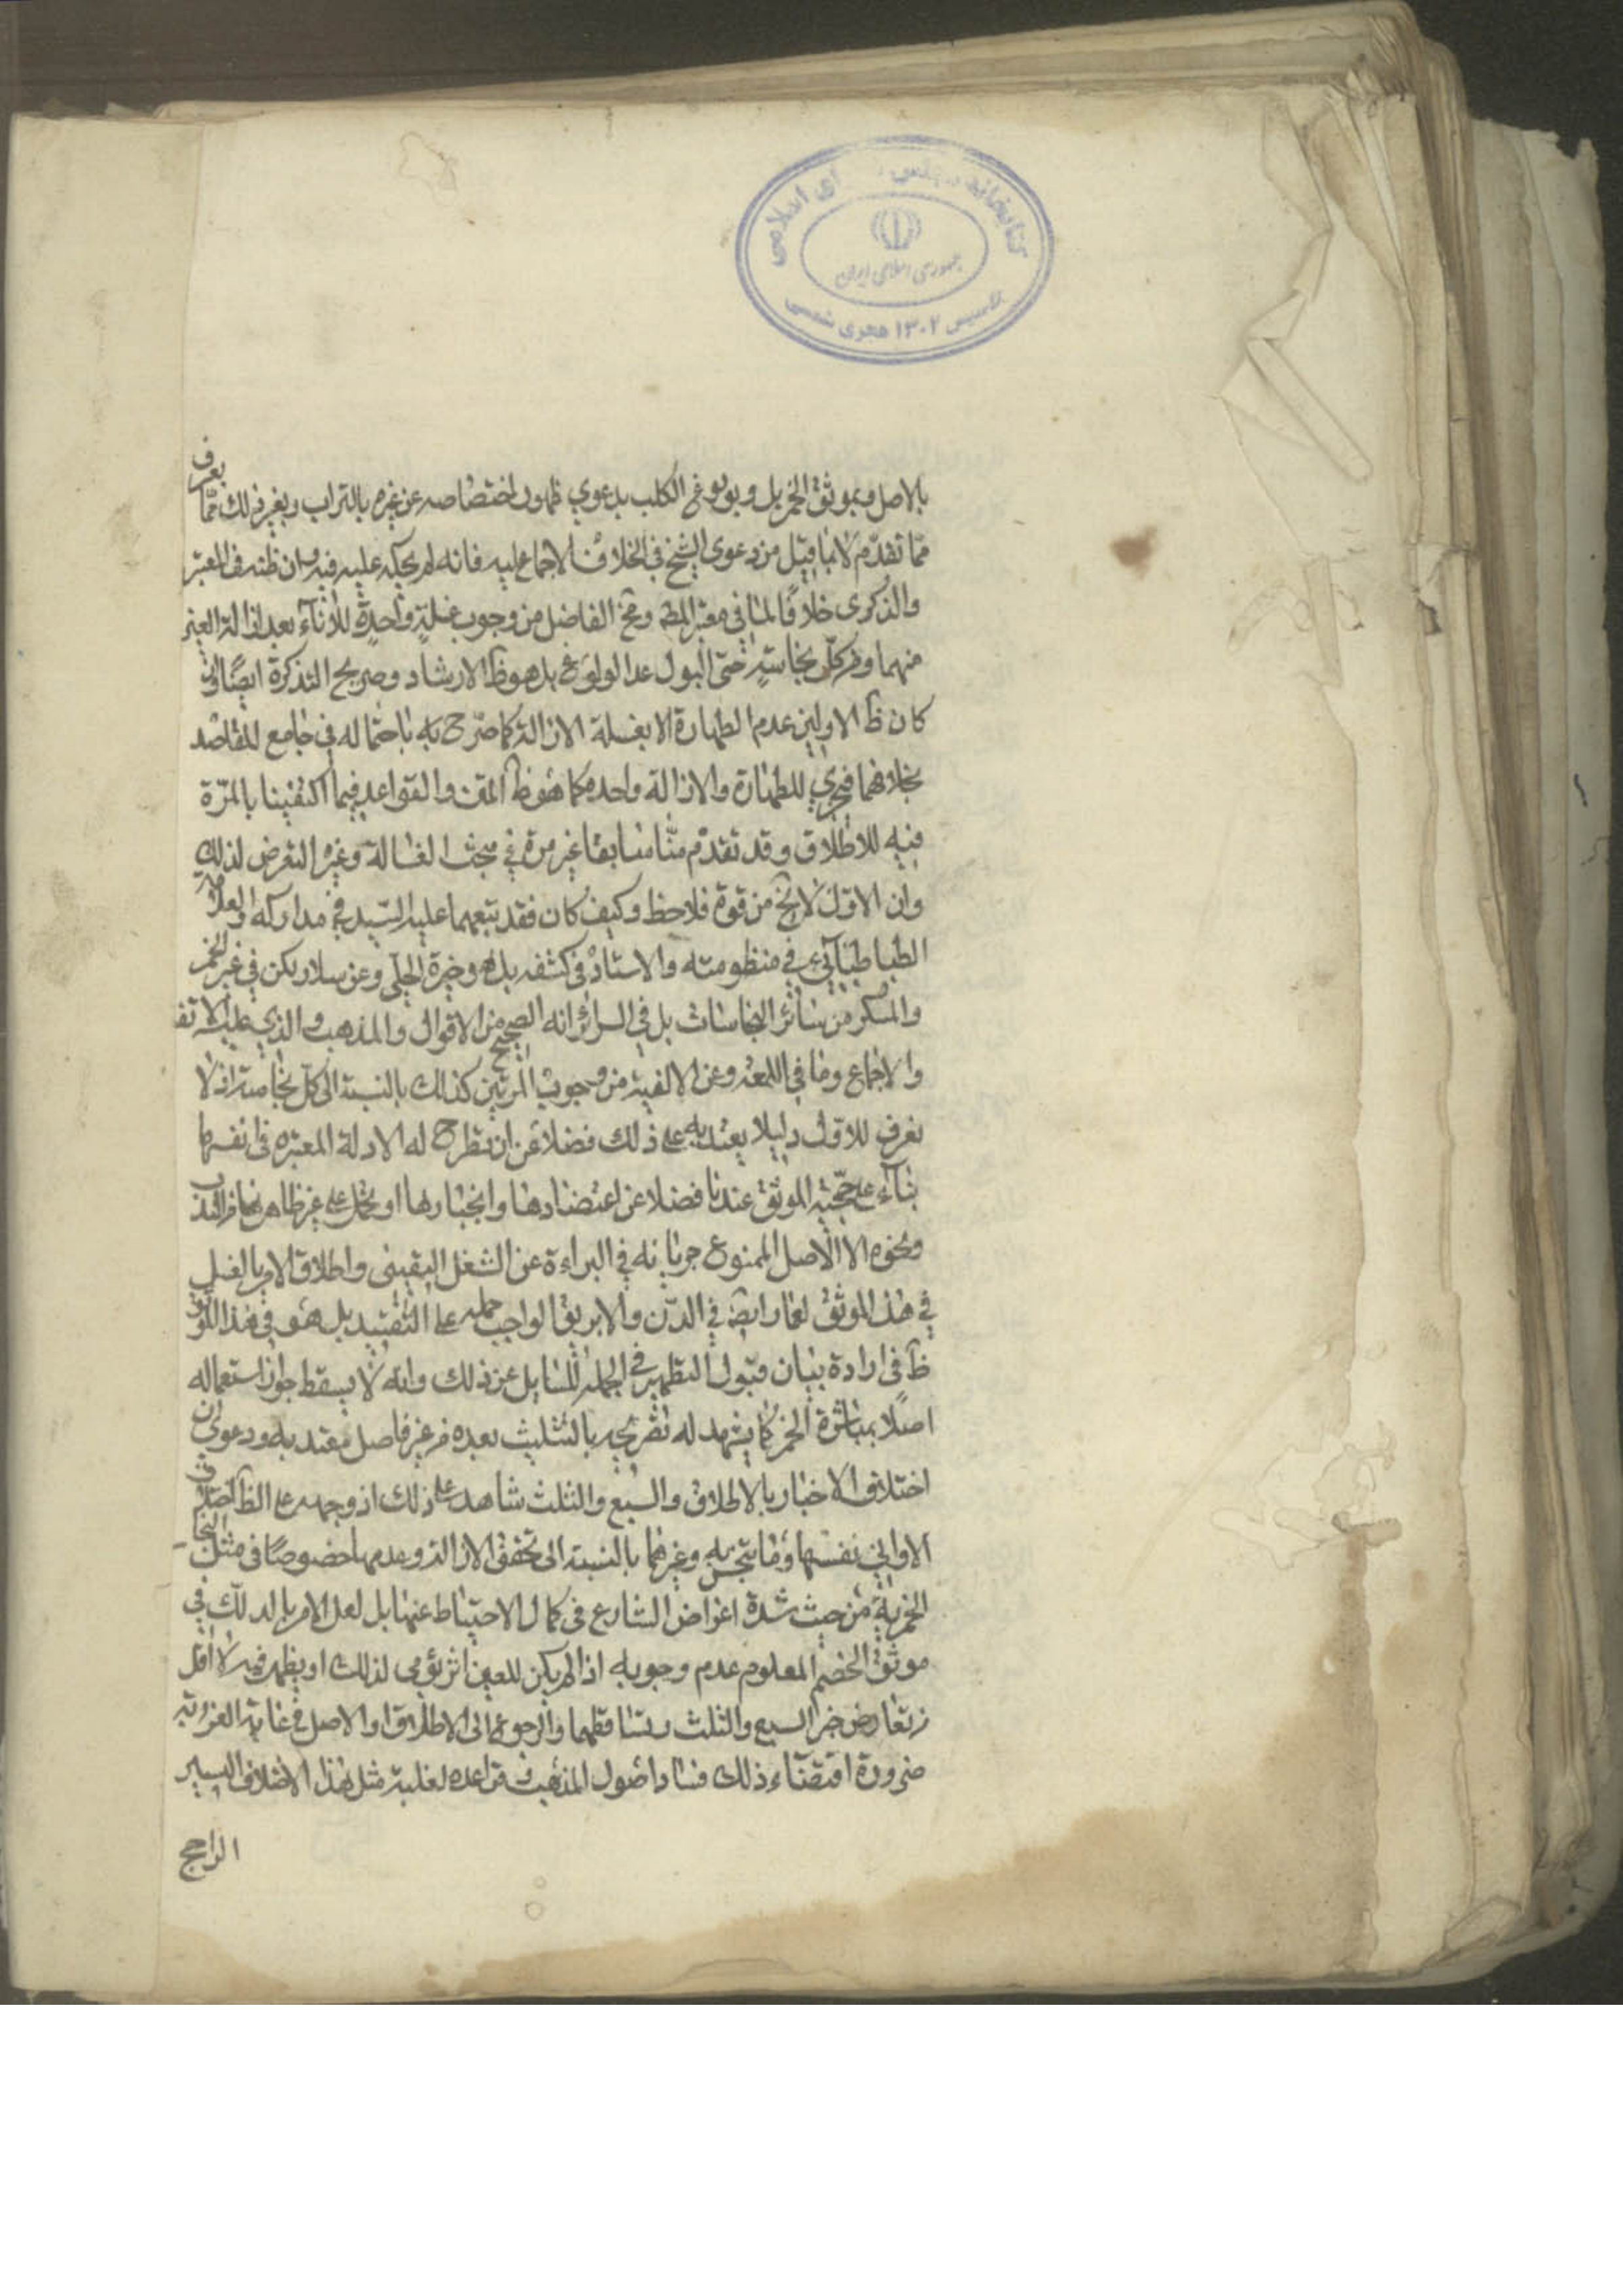 کتابخانه مجلس ای اسلامی
جمهوری اسلامی ایران
تاسیس ۱۳۰۲ هجری شمسی
بالاصل وبموثق الخمر بل وبولوغ الكلب بدعوى ظهور اختصاصه عن غيره بالتراب وبغير ذلك ممّا يعرف
ممّا تقدّم لا بما قيل من دعوى الشيخ في الخلاف الاجماع عليه فانه لم يحكه عليه فيه وان ظنه في المعتبر
والذكرى خلافًا لما في معتبر المص ومخ الفاضل من وجوب غسلة واحدة للاناء بعد ازالة العين
منهما ومن كل نجاسة حتى البول عدا الولوغ بل هو ظ الارشاد وصريح التذكرة ايضًا وان
كان ظ الاولين عدم الطهارة الا بغسلة الازالة كما صرّح به باحتماله في جامع المقاصد
بخلافهما فيجزي للطهارة والازالة واحدة كما هو ظ المتن والقواعد فيما اكتفينا بالمرّة
فيه للاطلاق وقد تقدم منّا سابقا غير مرة في مبحث الغسالة وغيره التعرض لذلك
وان الاوّل لا يخ من قوة فلاحظ وكيف كان فقد تبعهما عليه السيد في مداركه والعلامة
الطباطبائي في منظومته والاستاد في كشفه بل هو خيرة الحلي وعن سلار لكن في غير الخمر
والمسكر من سائر النجاسات بل في السرائر انه الصحيح من الاقوال والمذهب والذي عليه الاتفا
والاجماع وما في اللمعة وعن الالفية من وجوب المرتين كذلك بالنسبة الى كل نجاسة اذ لا
نعرف للاول دليلا يعتد به على ذلك فضلا عن ان تطرح له الادلة المعتبرة في انفسها
بناء على حجّية الموثق عندنا فضلا عن اعتضادها وانجبارها او تحمل على غير ظاهرها من الندب
ونحوه الا الاصل الممنوع جريانه في البراءة عن الشغل اليقيني واطلاق الامر بالغسل
في هذا الموثق لعمار ايض في الدّن والابريق الواجب حمله على التقييد بل هو في هذا الموثق
ظ في ارادة بيان قبول التطهير في الجملة للسايل عن ذلك وانه لا يسقط جواز استعماله
اصلا بمباشرة الخمر كما يشهد له تصريحه بالتثليث بعده من غير فاصل معتد به ودعوى ان
اختلاف الاخبار بالاطلاق والسبع والثلث شاهد على ذلك اذ وجهه على الظ اختلاف
الاواني نفسها وما تنجس به وغيرهما بالنسبة الى تحقق الازالة وعدمها خصوصًا في مثل النجا
الخمرية من حيث شدة اغراض الشارع في كمال الاحتياط عنها بل لعل الامر بالدلك في
موثق الخصم المعلوم عدم وجوبه اذا لم يكن للعين اثر يؤمى لذلك او يظهر فيه لا اقل
من تعارض خبر السبع والثلث وتساقطهما والرجوع الى الاطلاق او الاصل في غاية الغرو
ضرورة اقتضاء ذلك فساد اصول المذهب وقواعده لغلبة مثل هذا الاختلاف اليسير
الراجح